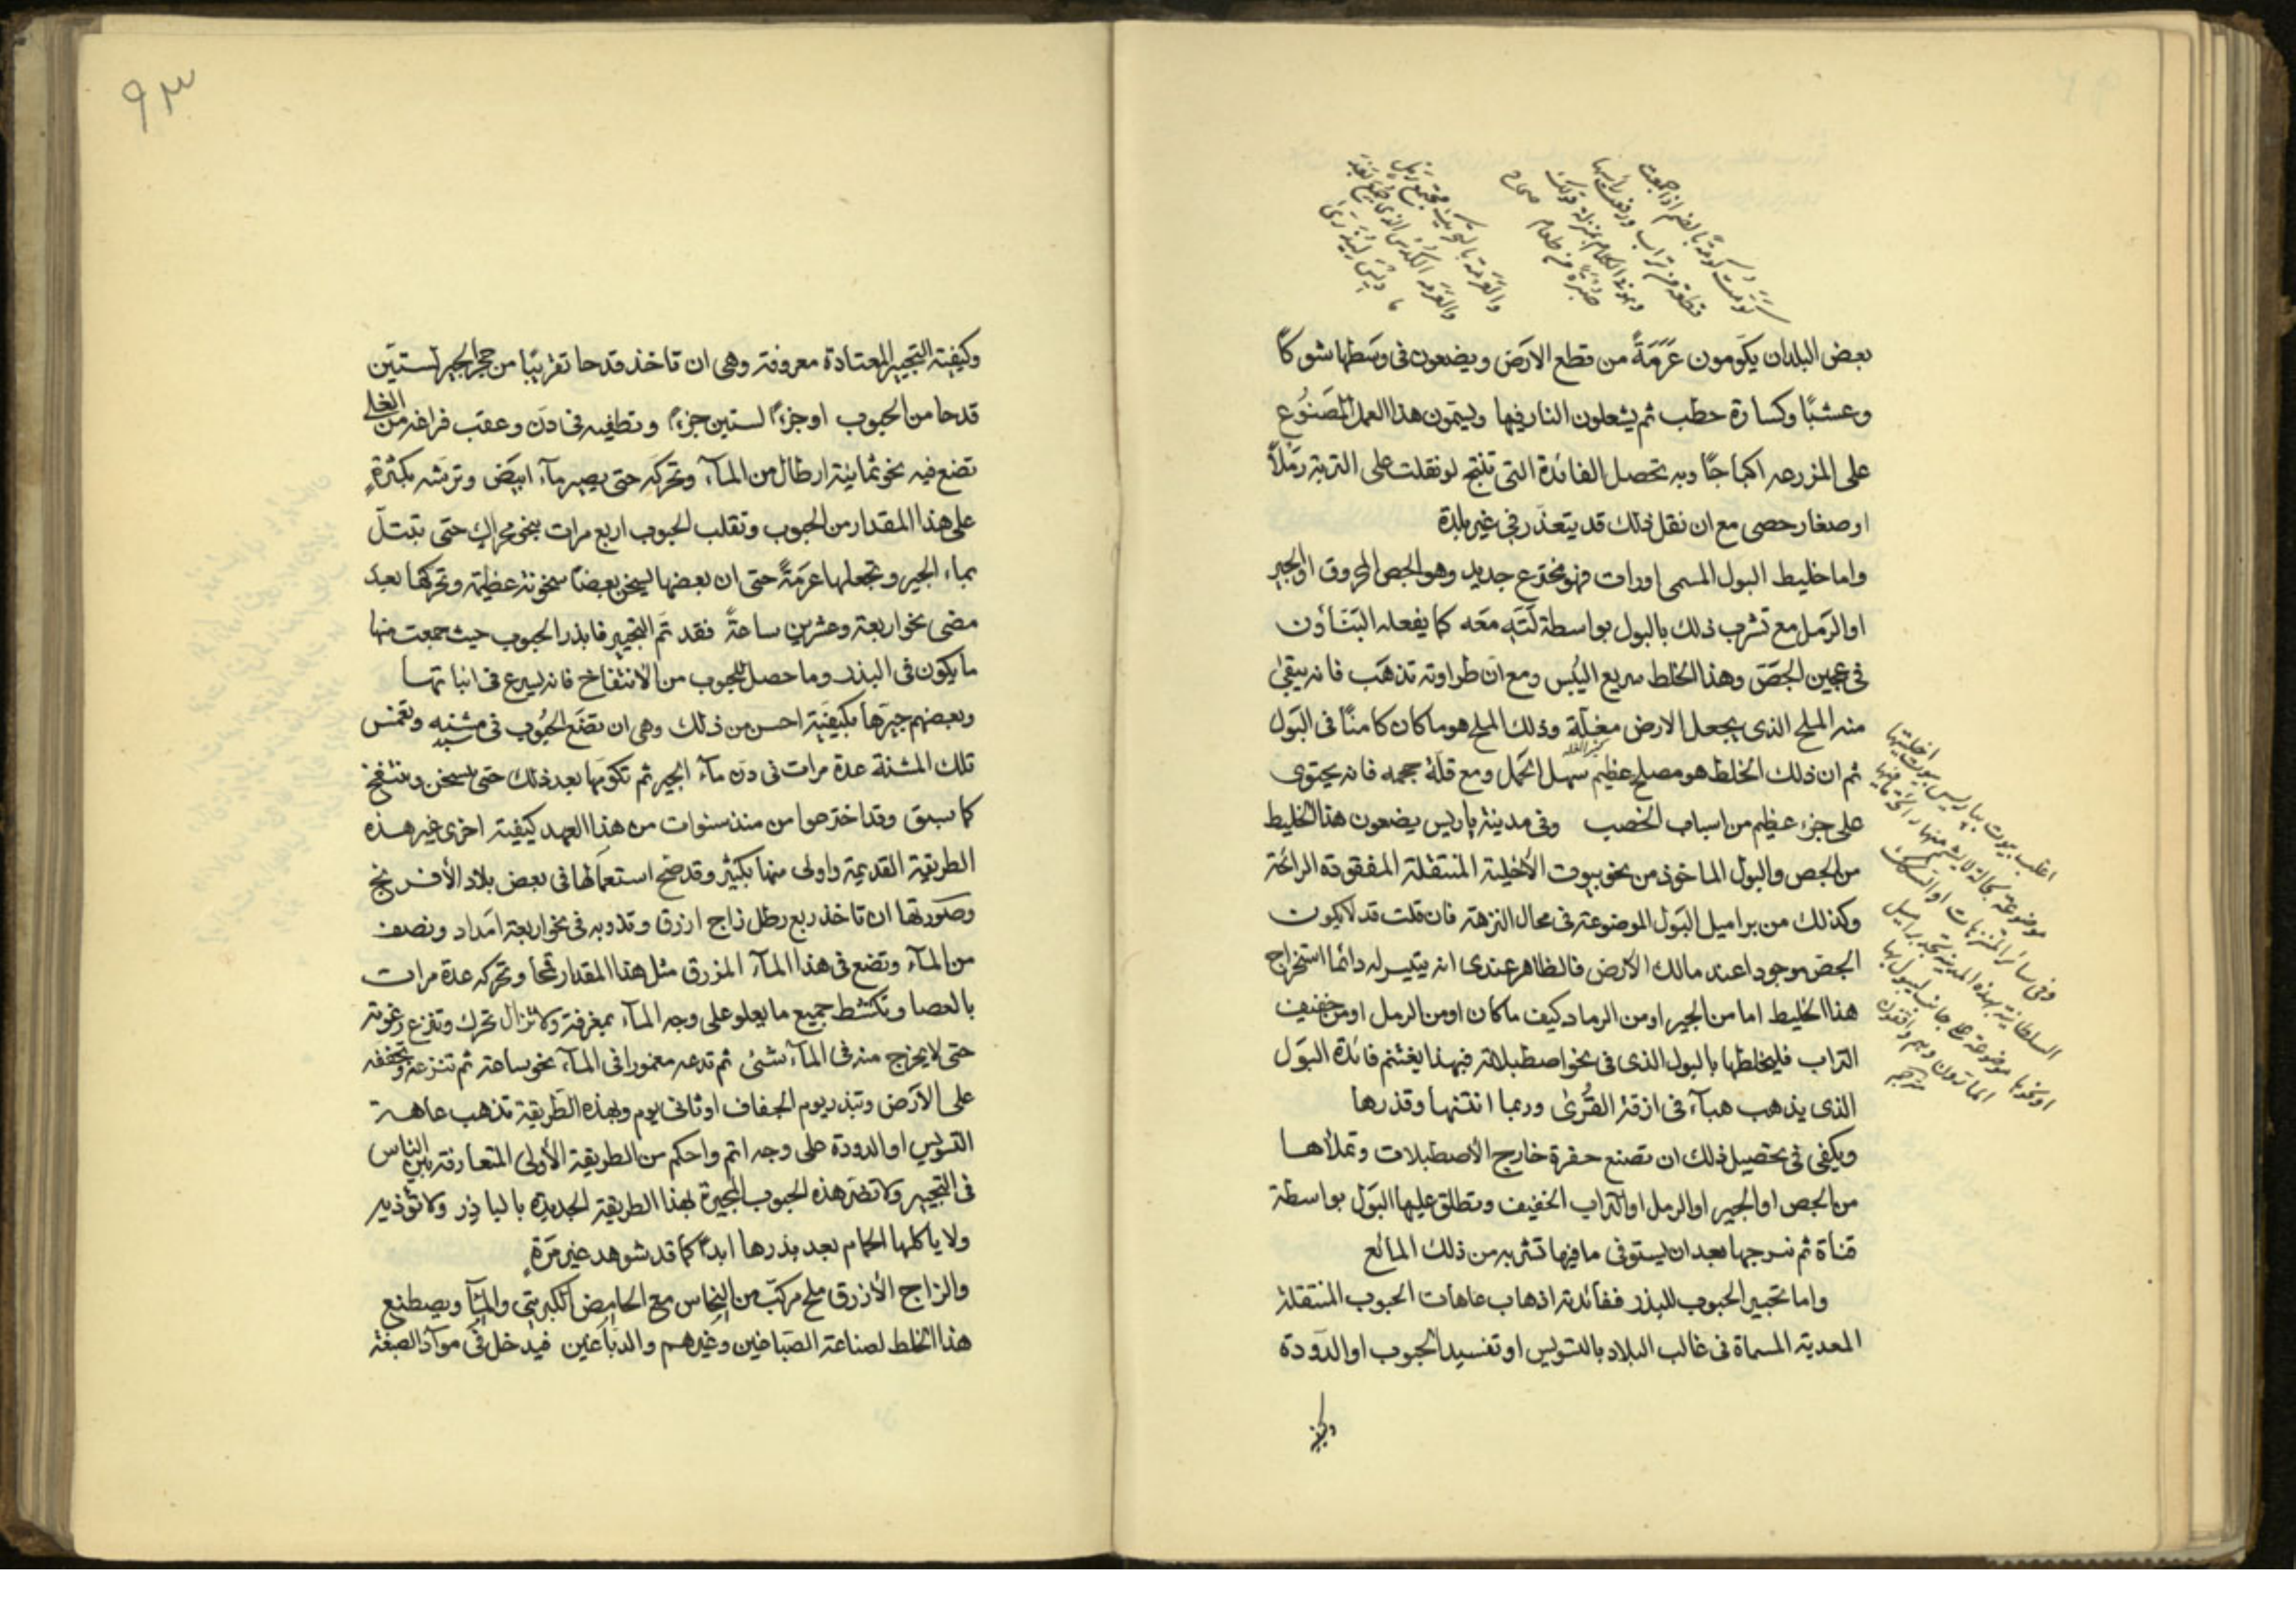 بعض البلدان يكَومون عَرَمَةً من قطع الارَض ويضعون فى وسَطها شوكًا
وعشبًا وكسارة حطب ثم يشعلون النار فيها ويسمون هذا العمل المصَنوُع
على المزرعه اكباجًا وبه تحصل الفائدة التى تنتج لو نقلت على التربة رَملاً
او صغار حصى مع ان نقل ذلك قد يتعذر فى غير بلدة
واما خليط البول المسمى اورات فهو مخترع جديد وهو الجص المحروق او الجير
او الرَمل مع تشرب ذلك بالبول بواسطة لَتّهِ معَه كما يفعله البَنَاؤن
فى عجين الجصّ وهذا الخلط سريع اليُبس ومع ان طراوته تذهَب فانه يبقىٰ
منه الملح الذى يجعل الارض مغلّة وذلك الملح هو ما كان كامنًا فى البَول
كثير الغله
ثم ان ذلك الخلط هو مصلح عظيم سهل الحَمل ومع قلّة حجمه فانه يحتوى
على جزء عظيم من اسباب الخصب وفى مدينة پاريس يضعون هذا الخليط
من الجص والبول الماخوذ من نحو بيوت الأخلية المنتقلة المفقودة الرائحة
وكذلك من براميل البَول الموضوعة فى محال النزهة فان قلت قد لا يكون
الجص موجودا عند مالك الارض فالظاهر عندى انه يتيسر له دائما استخراج
هذا الخليط اما من الجير او من الرماد كيف ما كان او من الرمل او من خفيف
التراب فليخلطها بالبول الذى فى نحو اصطبلاته فبهذا يغتنم فائدة البوَل
الذى يذهب هبآء فى ازقة القُرىٰ وربما انتنها وقذرها
ويكفى فى تحصيل ذلك ان تصنع حفرة خارج الاصطبلات وتملأها
من الجص او الجير او الرمل او التراب الخفيف وتطلق عليها البَول بواسطة
قناة ثم تخرجها بعد ان يستوفى ما فيها تشربه من ذلك المائع
واما تجيير الحبوب للبذر ففائدته اذهاب عاهات الحبوب المنتقلة
المعدية المسماة فى غالب البلاد بالتسويس او تفسيد الحبوب او الدوَدة
وكيفية
اغلب بيوت پاريس بيوت اخليتها
موضوعة بحالة لا يشم منها رائحة ما فيها
وفى سائر المنتزهات او السكك
السلطانية بهذه المدينة تجد براميل
او نحوها موضوعة على جانب ليبول بها
المارون وهم واقفون
مترجم
٩٣
وكيفية التجيير المعتادة معروفة وهى ان تاخذ قدحا تقريبًا من حجر الجير لستين
قدحا من الحبوب او جزءً لستين جزءً وتطفيه فى دَن وعقب فراغه من الغلى
تضع فيه نحو ثمانية ارطال من المآء وتحركه حتى يصير مآء ابيَض وترشه بكثرةٍ
على هذا المقدار من الحبوب وتقلب الحبوب اربع مرات بنحو محراك حتى تبتلّ
بماء الجير وتجعلها عرَمَةً حتى ان بعضها ليسخن بعضًا سخونة عظيمة وتحركها بعدَ
مضى نحو اربعة وعشرين ساعةً فقد تَم التجيير فابذر الحبوب حيث جمعت منها
ما يكون فى البذر وما حصل للحبوب من الانتفاخ فانه يسرع فى انباتها
وبعضهم جيّرها بكيفية احسن من ذلك وهى ان تضَع الحُبوب فى مشنه وتغمس
تلك المشنة عدة مرات فى دَن مآء الجير ثم تكومها بعد ذلك حتى تسخن وتنتفخ
كما سبق وقد اخترعوا من منذ سنوات من هذا العهد كيفية اخرى غير هذه
الطريقة القديمة واولى منها بكثير وقد صَح استعمَالها فى بعض بلاد الأفرنج
وصورتها ان تاخذ ربع رطل زاج ازرق وتذوبه فى نحو اربعة امَداد ونصف
من المآء وتضع فى هذا المآء المزرق مثل هذا المقدار قمحا وتحركه عدة مرات
بالعصا وتكشط جميع ما يعلو على وجه المآء بمغرفة ولا تزال تحرك وتنزع رغوته
حتى لا يخرج منه فى المآء شئ ثم تدعه مغمورا فى المآء نحو ساعة ثم تنزعه وتجففه
على الارَض وتبذر يوم الجفاف او ثانى يوم وبهذه الطَريقة تذهب عاهة
التسويس او الدودة على وجه اتم واحكم من الطريقة الأولى المتعارفة بين الناس
فى التجيير ولا تضر هذه الحبوب المجيرة بهذا الطريقة الجديدة بالباذر ولا تؤذيه
ولا ياكلها الحمام بعد بذرها ابدًا كما قد شوهد غير مَرةٍ
والزاج الأزرق ملح مركَب من النحاس مع الحامض الكبريتى والمآء ويصطنع
هذا الخلط لصناعة الصَباغين وغيرهم والدباَغين فيدخل فى موآد الصبغة